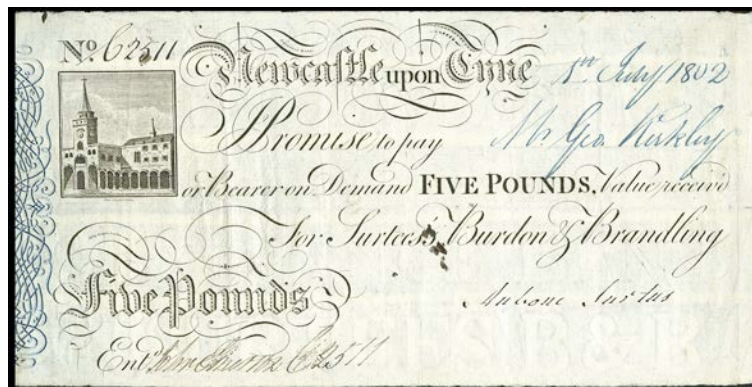 No. C2511
Newcastle upon Tyne 1st July 1802
I Promise to pay Mr. Geo. Kirkley
or Bearer on Demand FIVE POUNDS, Value receiv'd
For Surtees's Burdon & Brandling
Five Pounds Aubone Surtees
Entd. John C2511